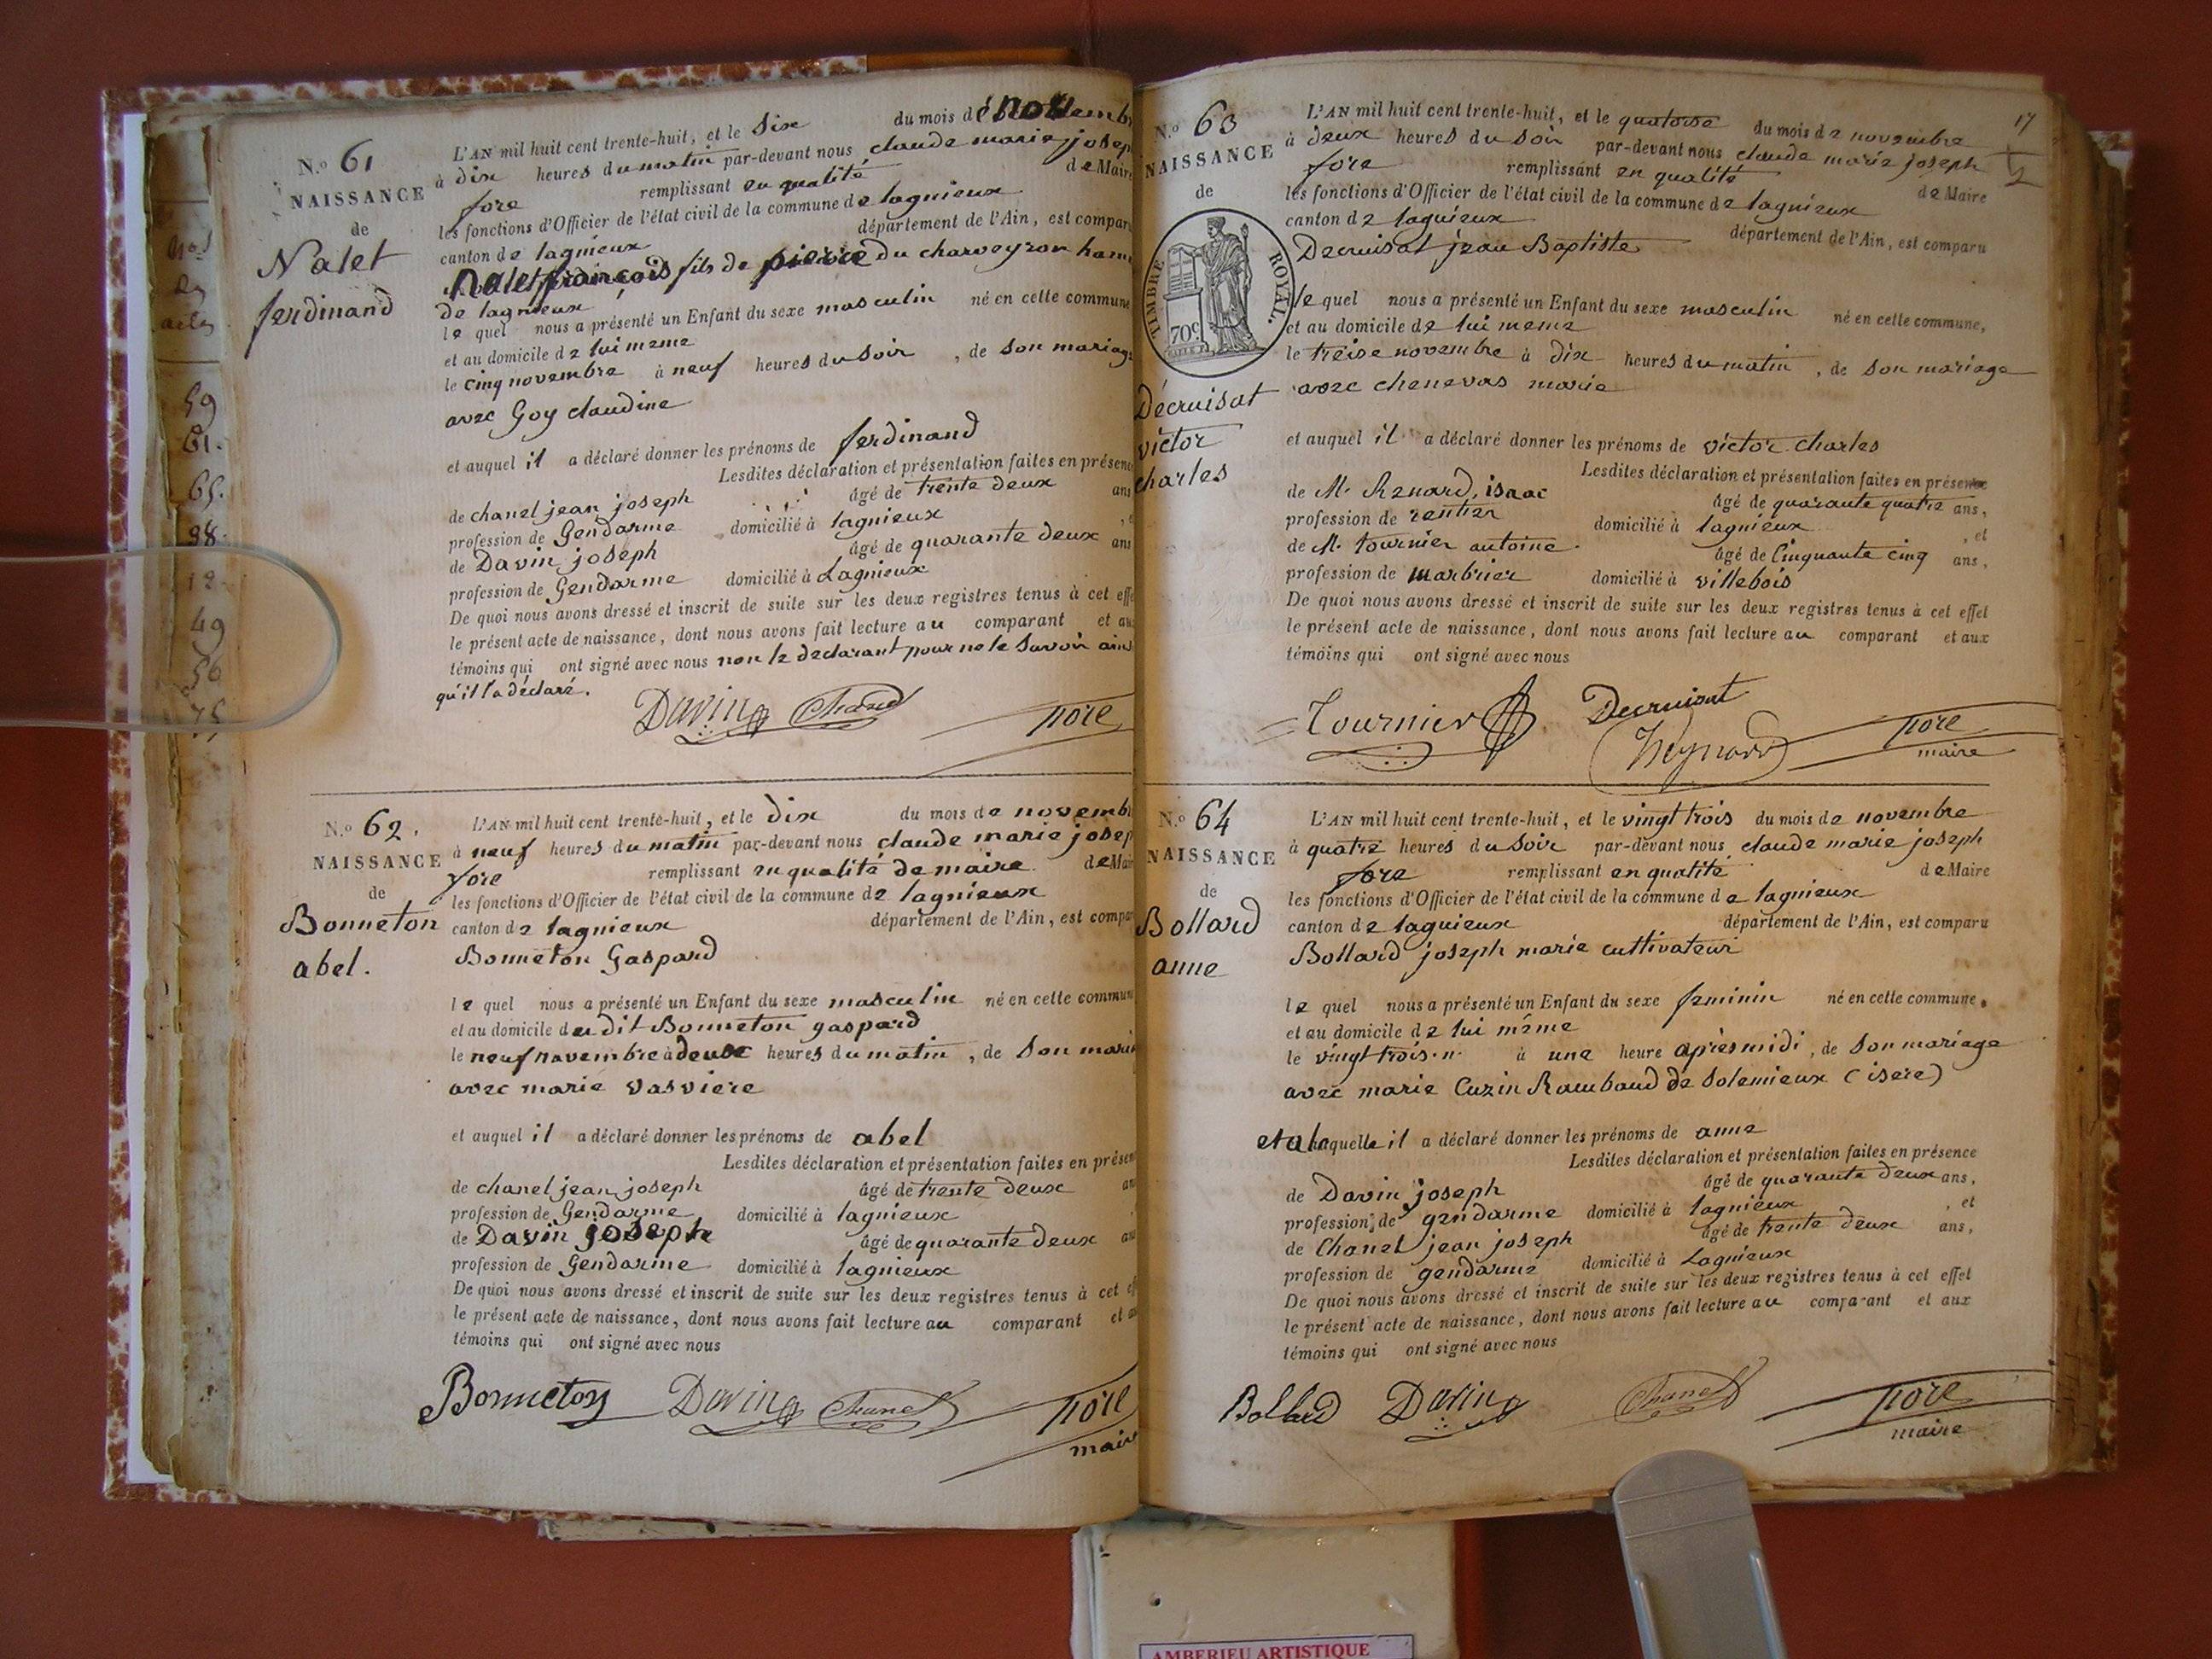 N.o 61
NAISSANCE
de
Nalet
ferdinand
L'AN mil huit cent trente-huit, et le Six du mois de novembre
à dix heures du matin par-devant nous claude marie joseph
fore remplissant en qualité de Maire
les fonctions d'Officier de l'état civil de la commune de lagnieux
canton de lagnieux département de l'Ain, est comparu
Nalet françois fils de pierre du charveyron ham
de lagnieux
le quel nous a présenté un Enfant du sexe masculin né en cette commune
et au domicile de lui meme
le cinq novembre à neuf heures du Soir, de Son mariage
avec Goy claudine
et auquel il a déclaré donner les prénoms de ferdinand
Lesdites déclaration et présentation faites en présence
de chanel jean joseph âgé de trente deux ans
profession de Gendarme domicilié à lagnieux
de Davin joseph âgé de quarante deux ans
profession de Gendarme domicilié à Lagnieux
De quoi nous avons dressé et inscrit de suite sur les deux registres tenus à cet effe
le présent acte de naissance, dont nous avons fait lecture au comparant et au
témoins qui ont signé avec nous non le declarant pour ne le Savoir ainsi
qu'il l'a déclaré.
Davin Chanel fore
N.o 62.
NAISSANCE
de
Bonneton
abel.
L'AN mil huit cent trente-huit, et le dix du mois de novembre
à neuf heures du matin par-devant nous claude marie joseph
fore remplissant en qualité de maire de Maire
les fonctions d'Officier de l'état civil de la commune de lagnieux
canton de lagnieux département de l'Ain, est compar
Bonneton Gaspard
le quel nous a présenté un Enfant du sexe masculin né en cette commune
et au domicile du dit Bonneton gaspard
le neuf novembre à deux heures du matin, de Son maria
avec marie vasviere
et auquel il a déclaré donner les prénoms de abel
Lesdites déclaration et présentation faites en présen
de chanel jean joseph âgé de trente deux an
profession de Gendarme domicilié à lagnieux
de Davin joseph âgé de quarante deux an
profession de Gendarme domicilié à lagnieux
De quoi nous avons dressé et inscrit de suite sur les deux registres tenus à cet ef
le présent acte de naissance, dont nous avons fait lecture au comparant et au
témoins qui ont signé avec nous
Bonneton Davin Chanel fore
maire
17
N.o 63
NAISSANCE
de
TIMBRE ROYAL.
70c
Décruisat
victor
charles
L'AN mil huit cent trente-huit, et le quatorse du mois de novembre
à deux heures du soir par-devant nous claude marie joseph
fore remplissant en qualité de Maire
les fonctions d'Officier de l'état civil de la commune de lagnieux
canton de lagnieux département de l'Ain, est comparu
Decruisat jean Baptiste
le quel nous a présenté un Enfant du sexe masculin né en cette commune,
et au domicile de lui meme
le treise novembre à dix heures du matin, de Son mariage
avec chenevas marie
et auquel il a déclaré donner les prénoms de victor charles
Lesdites déclaration et présentation faites en présence
de M. Renard, isaac âgé de quarante quatre ans,
profession de rentier domicilié à lagnieux, et
de M. tournier antoine âgé de Cinquante cinq ans,
profession de marbrier domicilié à villebois
De quoi nous avons dressé et inscrit de suite sur les deux registres tenus à cet effet
le présent acte de naissance, dont nous avons fait lecture au comparant et aux
témoins qui ont signé avec nous
Tournier Decruisat
Reynard fore
maire
N.o 64
NAISSANCE
de
Bollard
anne
L'AN mil huit cent trente-huit, et le vingt trois du mois de novembre
à quatre heures du Soir par-devant nous claude marie joseph
fore remplissant en qualité de Maire
les fonctions d'Officier de l'état civil de la commune de lagnieux
canton de lagnieux département de l'Ain, est comparu
Bollard joseph marie cultivateur
le quel nous a présenté un Enfant du sexe feminin né en cette commune,
et au domicile de lui même
le vingt trois n. à une heure après midi, de Son mariage
avec marie Cuzin Rambaud de Solemieux (isere)
et a laquelle il a déclaré donner les prénoms de anne
Lesdites déclaration et présentation faites en présence
de Davin joseph âgé de quarante deux ans,
profession de gendarme domicilié à lagnieux, et
de Chanel jean joseph âgé de trente deux ans,
profession de gendarme domicilié à Lagnieux
De quoi nous avons dressé et inscrit de suite sur les deux registres tenus à cet effet
le présent acte de naissance, dont nous avons fait lecture au comparant et aux
témoins qui ont signé avec nous
Bollard Davin Chanel fore
maire
59
61.
65.
98.
12.
49
56
75
AMBERIEU ARTISTIQUE